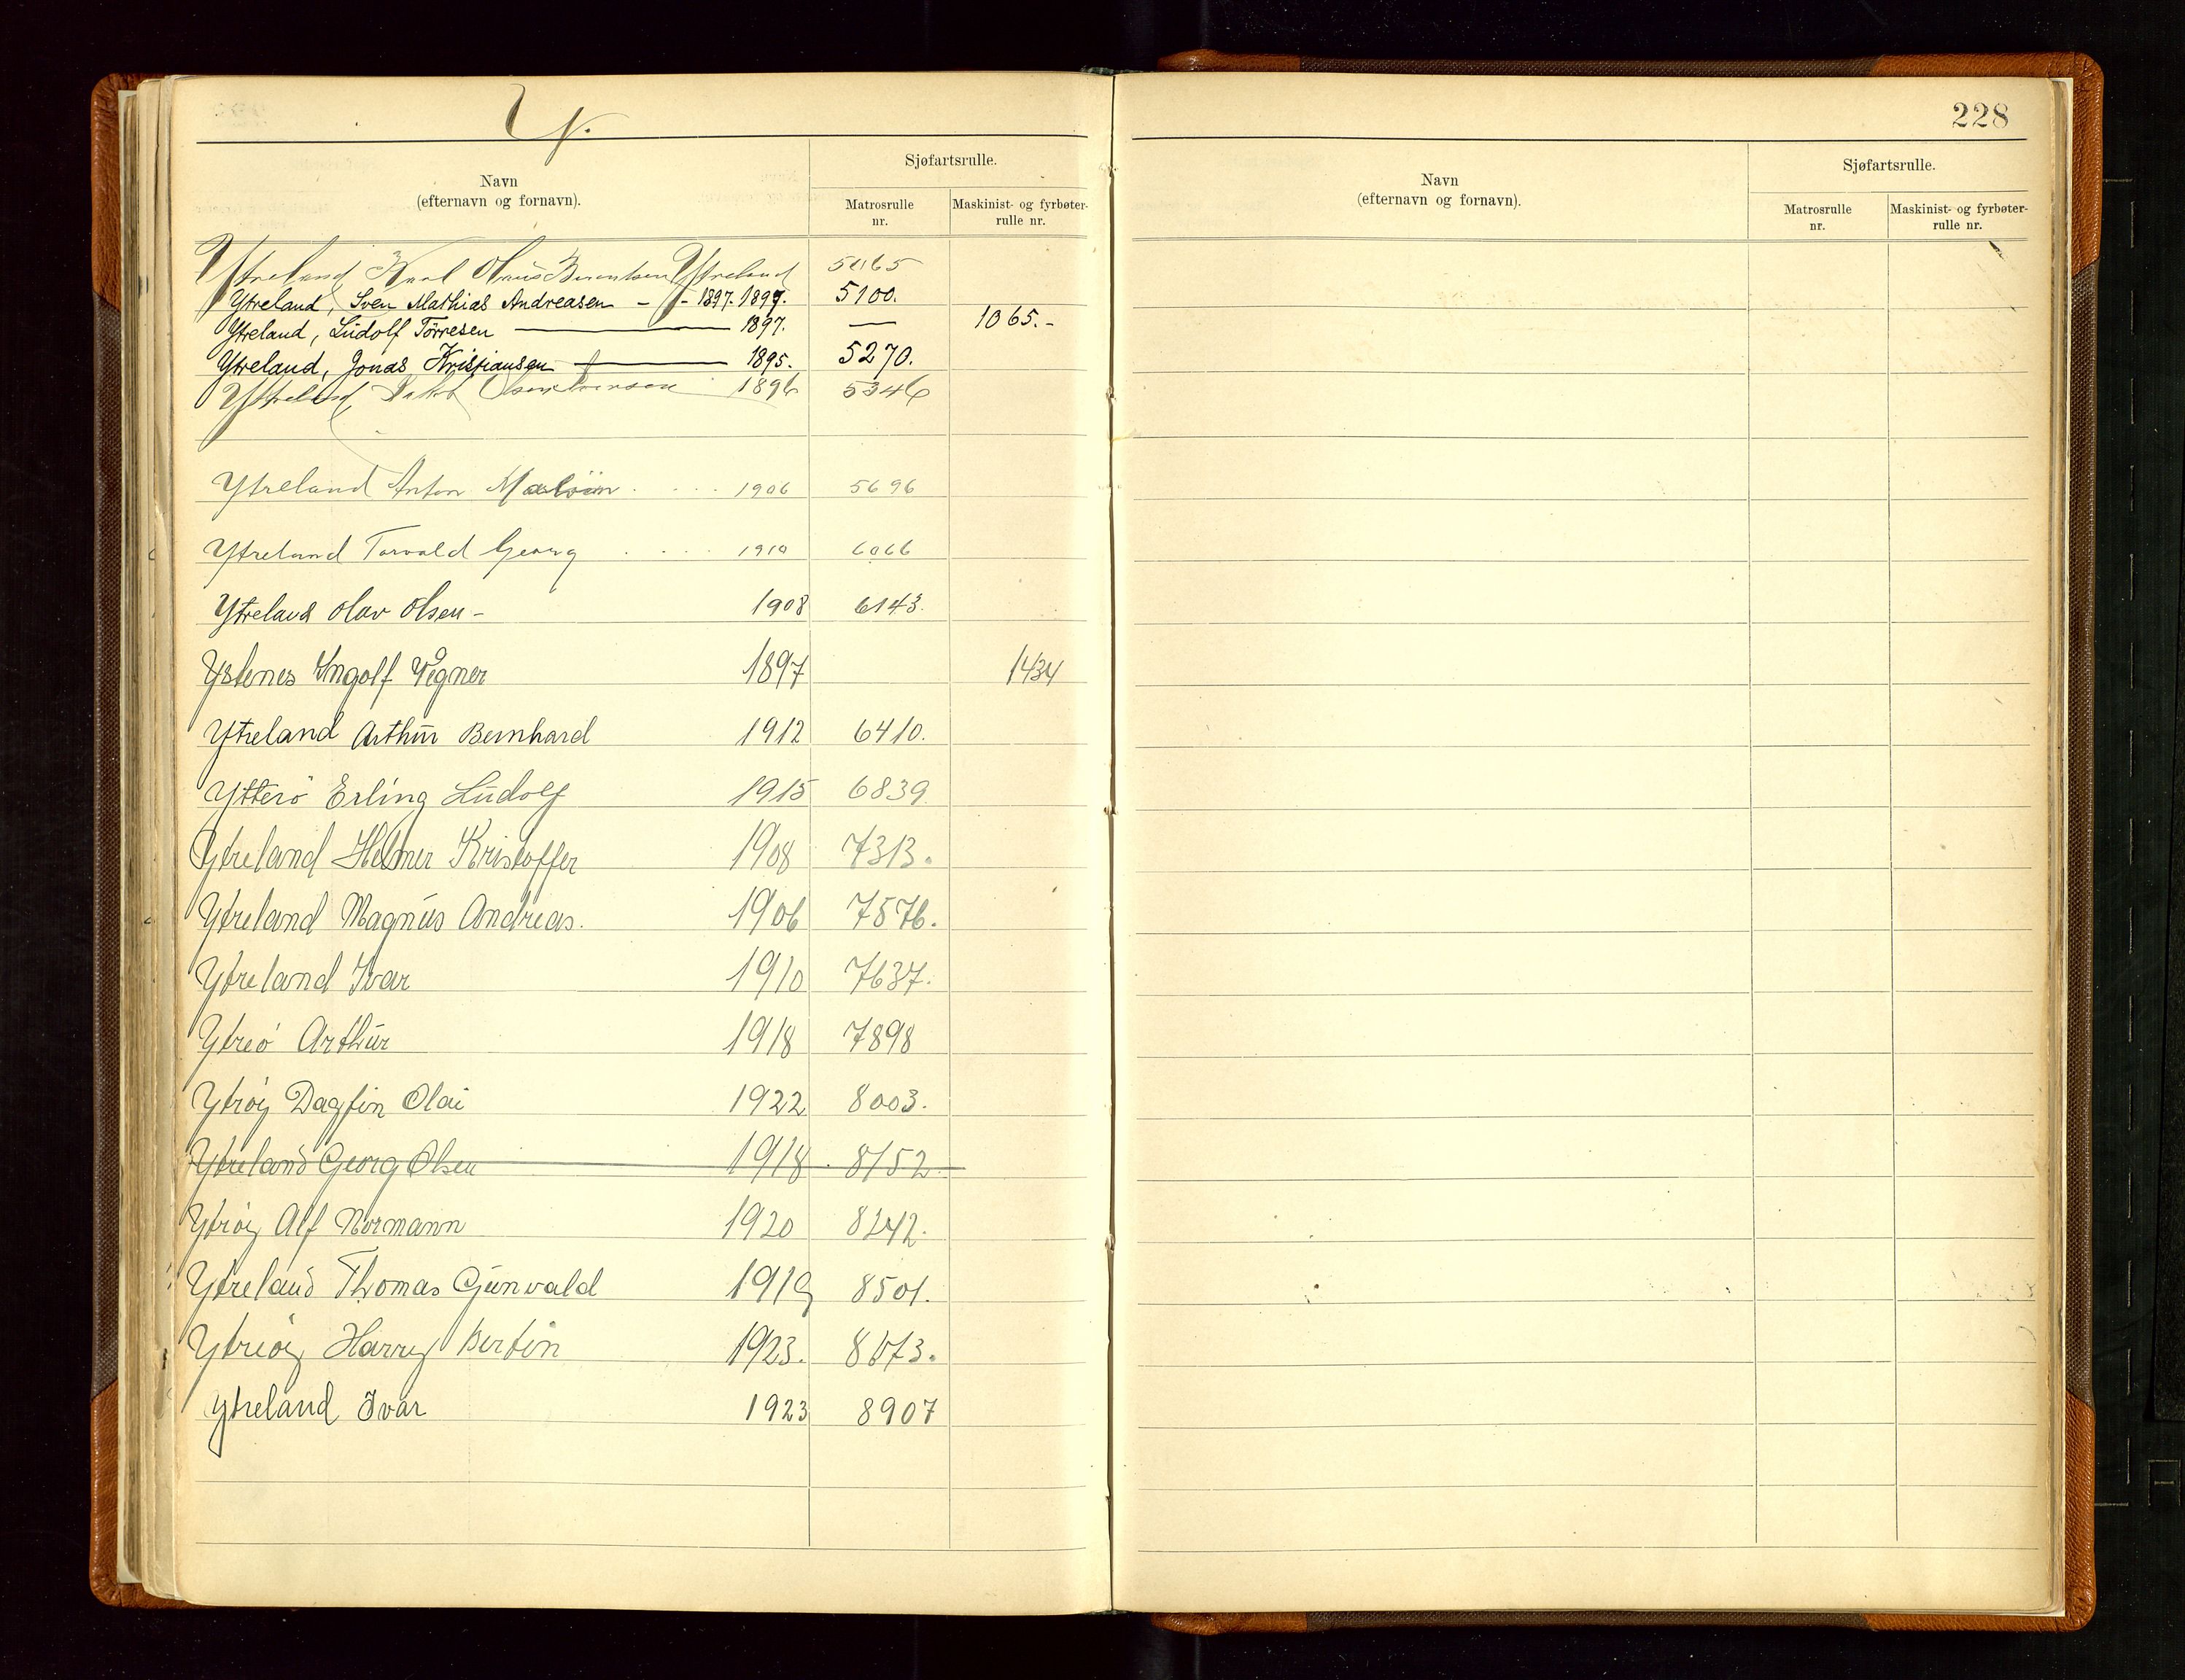 Y.
Navn
(efternavn og fornavn).
Sjøfartsrulle.
Matrosrulle
nr.
Maskinist- og fyrbøter-
rulle nr.
Ytreland Ytreland 5065
Ytreland, Sven Mathias Andreasen - - 1897. 1897. 5100.
Ytreland, Ludolf Tørresen — 1897. — 1065.-
Ytreland, Jonas Kristiansen — 1895. 5270.
Ytreland 1896 5346
Ytreland Anton . . . . 1906 5696
Ytreland Torvald Georg . . . . 1910 6066
Ytreland Olav Olsen - 1908 6143.
Ystenes Ingolf Vegner 1897 1434
Ytreland Arthur Bernhard 1912 6410.
Ytterö Erling Ludolf 1915 6839.
Ytreland Helmer Kristoffer 1908 7313.
Ytreland Magnus Andreas. 1906 7576.
Ytreland Ivar 1910 7637.
Ytreö Arthur 1918 7898
Ytröy Dagfin Olai 1922 8003.
Ytreland Georg Olsen 1918. 8152.
Ytröy Alf Normann 1920 8242.
Ytreland Thomas Gunvald 1919 8501.
Ytreöy Harry Bertin 1923.
Ytreland Ivar 1923 8907
228
Navn
(efternavn og fornavn).
Sjøfartsrulle.
Matrosrulle
nr.
Maskinist- og fyrbøter-
rulle nr.